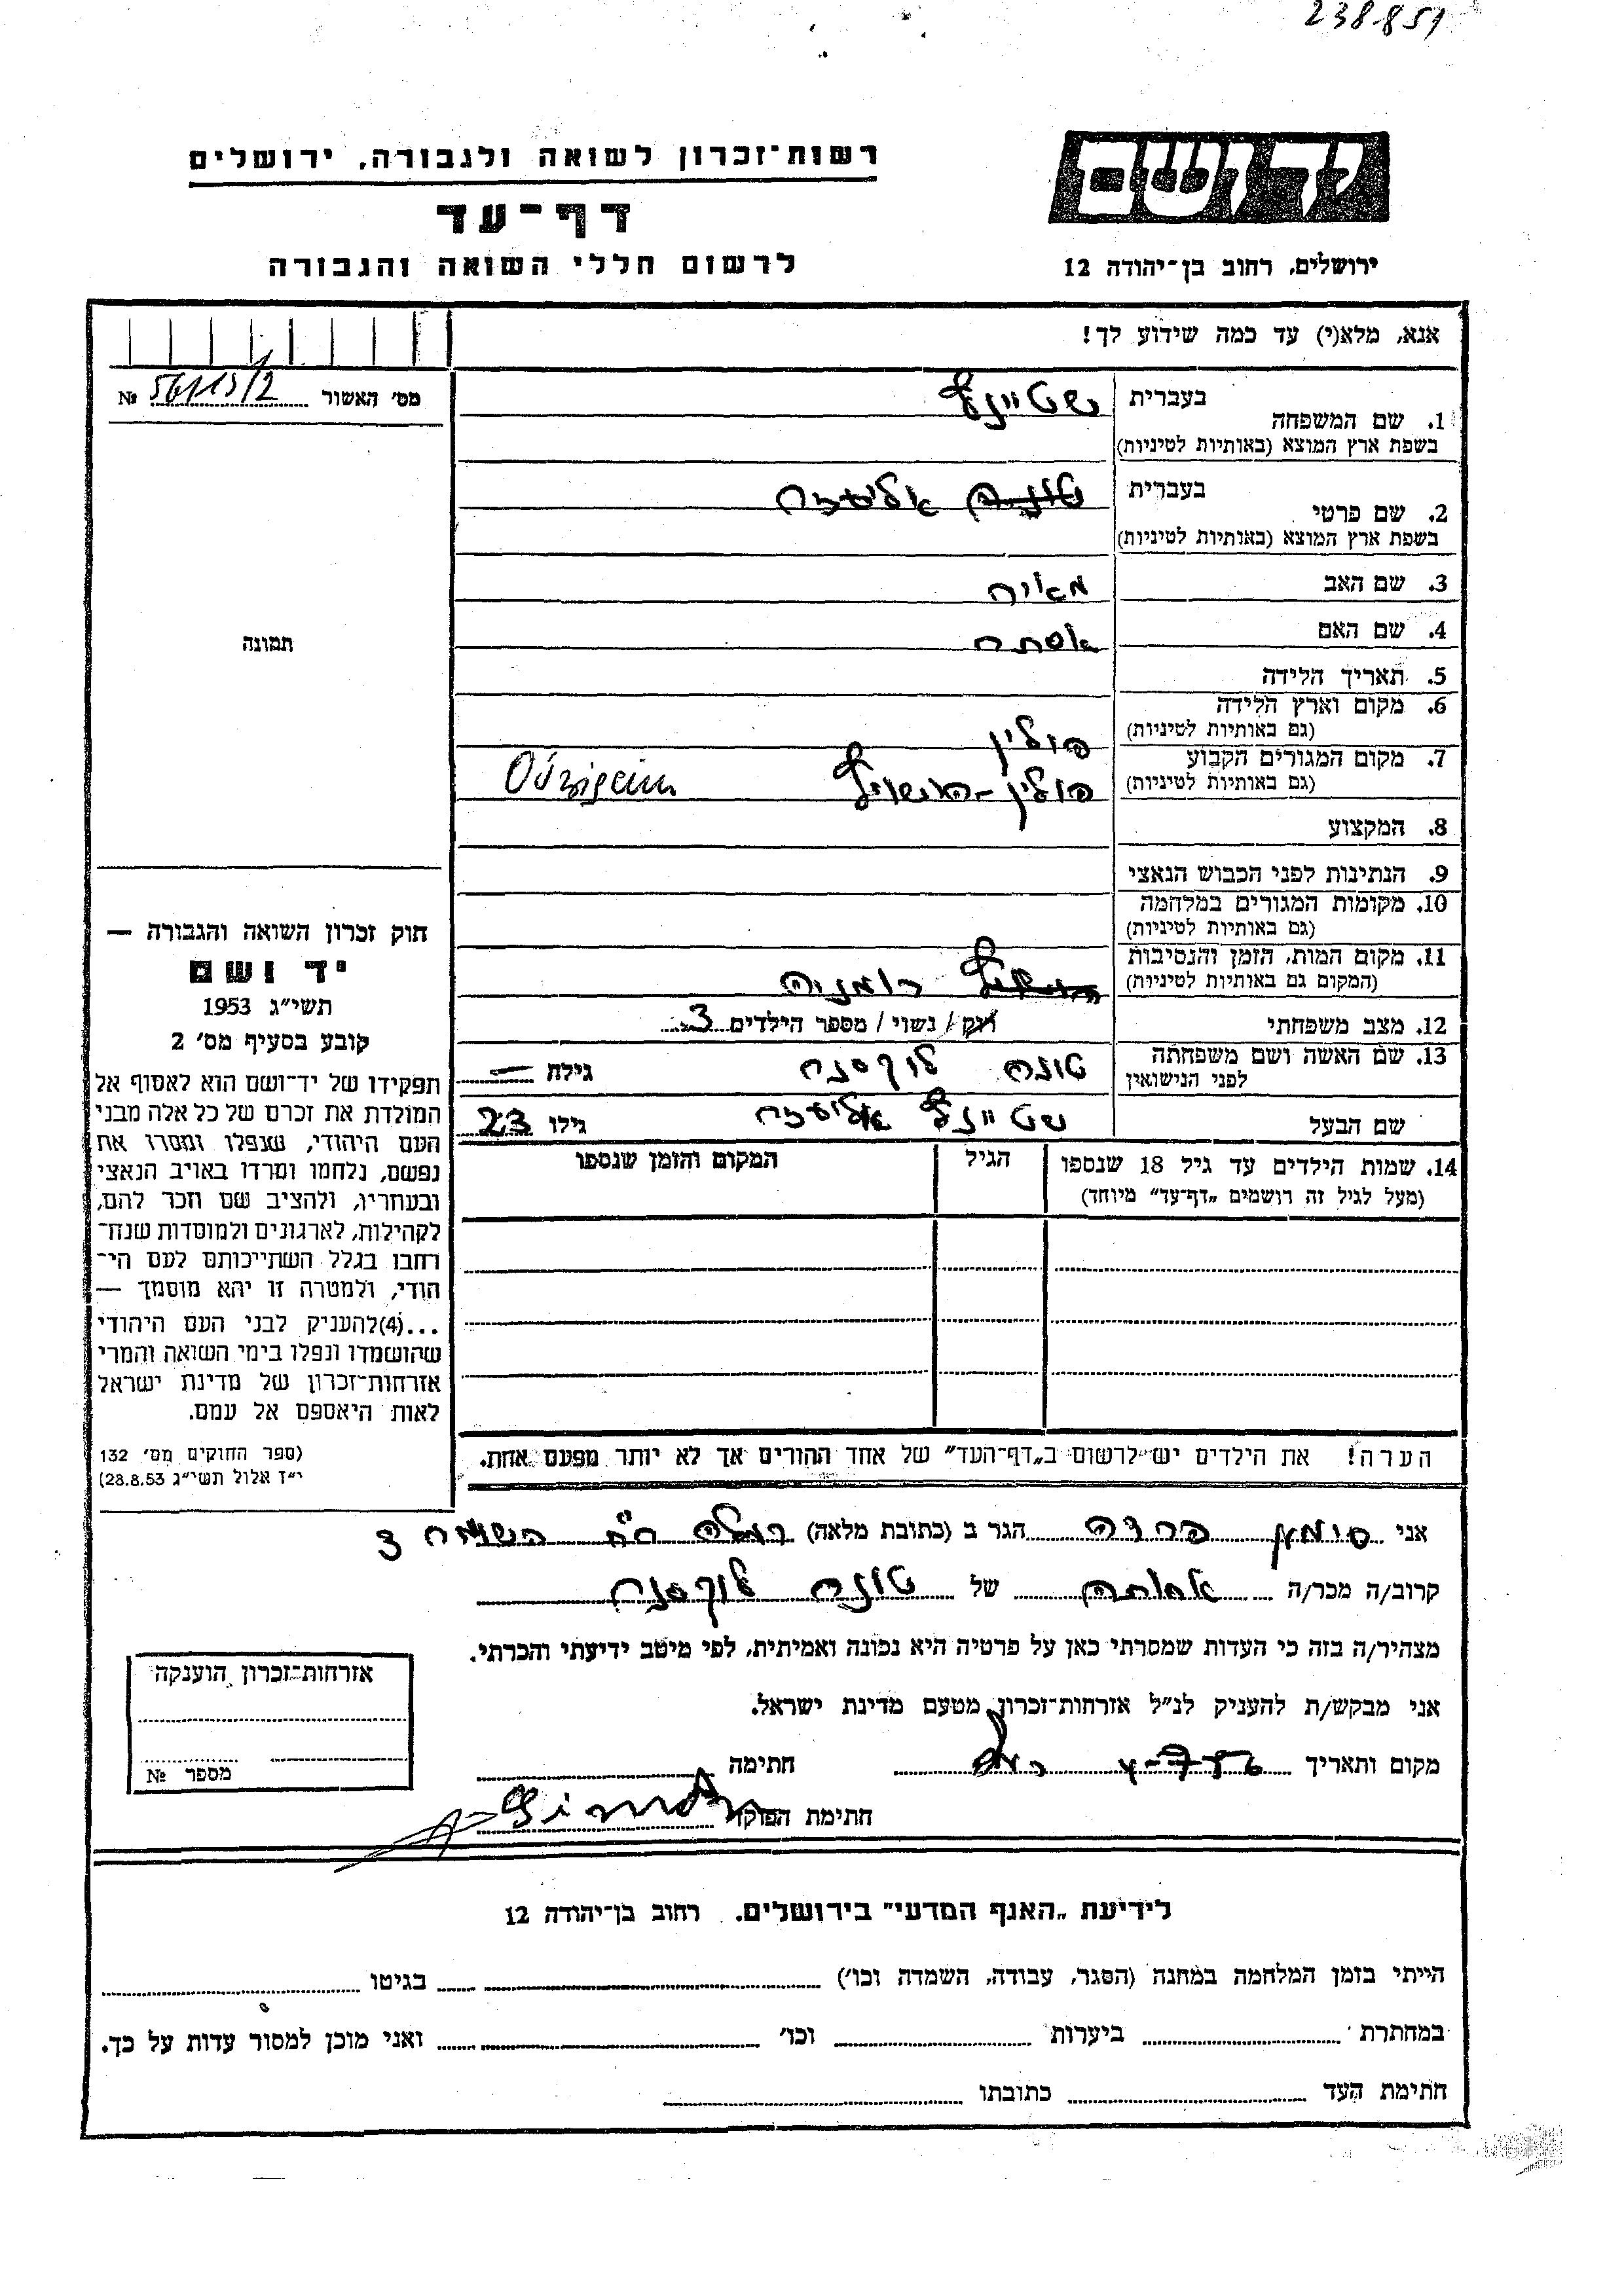 238851
יד ושם
רשות־זכרון לשואה ולגבורה, ירושלים
דף־עד
ירושלים, רחוב בן־יהודה 12
לרשום חללי השואה והגבורה
אנא, מלא(י) עד כמה שידוע לך!
מס' האשור № 56113/2
תמונה
1. שם המשפחה
בעברית
בשפת ארץ המוצא (באותיות לטיניות)
2. שם פרטי
בעברית אליעזר
בשפת ארץ המוצא (באותיות לטיניות)
3. שם האב מאיר
4. שם האם אסתר
5. תאריך הלידה
6. מקום וארץ הלידה פולין
(גם באותיות לטיניות)
7. מקום המגורים הקבוע פולין
(גם באותיות לטיניות)
8. המקצוע
9. הנתינות לפני הכבוש הנאצי
10. מקומות המגורים במלחמה
(גם באותיות לטיניות)
11. מקום המות, הזמן והנסיבות רומניה
(המקום גם באותיות לטיניות)
12. מצב משפחתי רוק / נשוי / מספר הילדים 3
13. שם האשה ושם משפחתה טונה גילה —
לפני הנישואין
שם הבעל אליעזר גילו 23
14. שמות הילדים עד גיל 18 שנספו הגיל המקום והזמן שנספו
(מעל לגיל זה רושמים „דף־עד” מיוחד)
חוק זכרון השואה והגבורה —
יד ושם
תשי״ג 1953
קובע בסעיף מס' 2
תפקידו של יד־ושם הוא לאסוף אל
המולדת את זכרם של כל אלה מבני
העם היהודי, שנפלו ומסרו את
נפשם, נלחמו ומרדו באויב הנאצי
ובעוזריו, ולהציב שם וזכר להם,
לקהילות, לארגונים ולמוסדות שנח־
רבו בגלל השתייכותם לעם הי־
הודי, ולמטרה זו יהא מוסמך —
...(4)להעניק לבני העם היהודי
שהושמדו ונפלו בימי השואה והמרי
אזרחות־זכרון של מדינת ישראל
לאות היאספם אל עמם.
(ספר החוקים מס' 132
י״ז אלול תשי״ג 28.8.53)
הערה! את הילדים יש לרשום ב„דף־העד” של אחד ההורים אך לא יותר מפעם אחת.
אני סימון פרדה הגר ב (כתובת מלאה) רמלה 3
קרוב/ה מכר/ה של טונה
מצהיר/ה בזה כי העדות שמסרתי כאן על פרטיה היא נכונה ואמיתית, לפי מיטב ידיעתי והכרתי.
אני מבקש/ת להעניק לנ״ל אזרחות־זכרון מטעם מדינת ישראל.
מקום ותאריך חתימה
חתימת הפוקד Simon
אזרחות־זכרון הוענקה
מספר №
לידיעת „האגף המדעי” בירושלים. רחוב בן־יהודה 12
הייתי בזמן המלחמה במחנה (הסגר, עבודה, השמדה וכו') בגיטו
במחתרת ביערות וכו' ואני מוכן למסור עדות על כך.
חתימת העד כתובתו